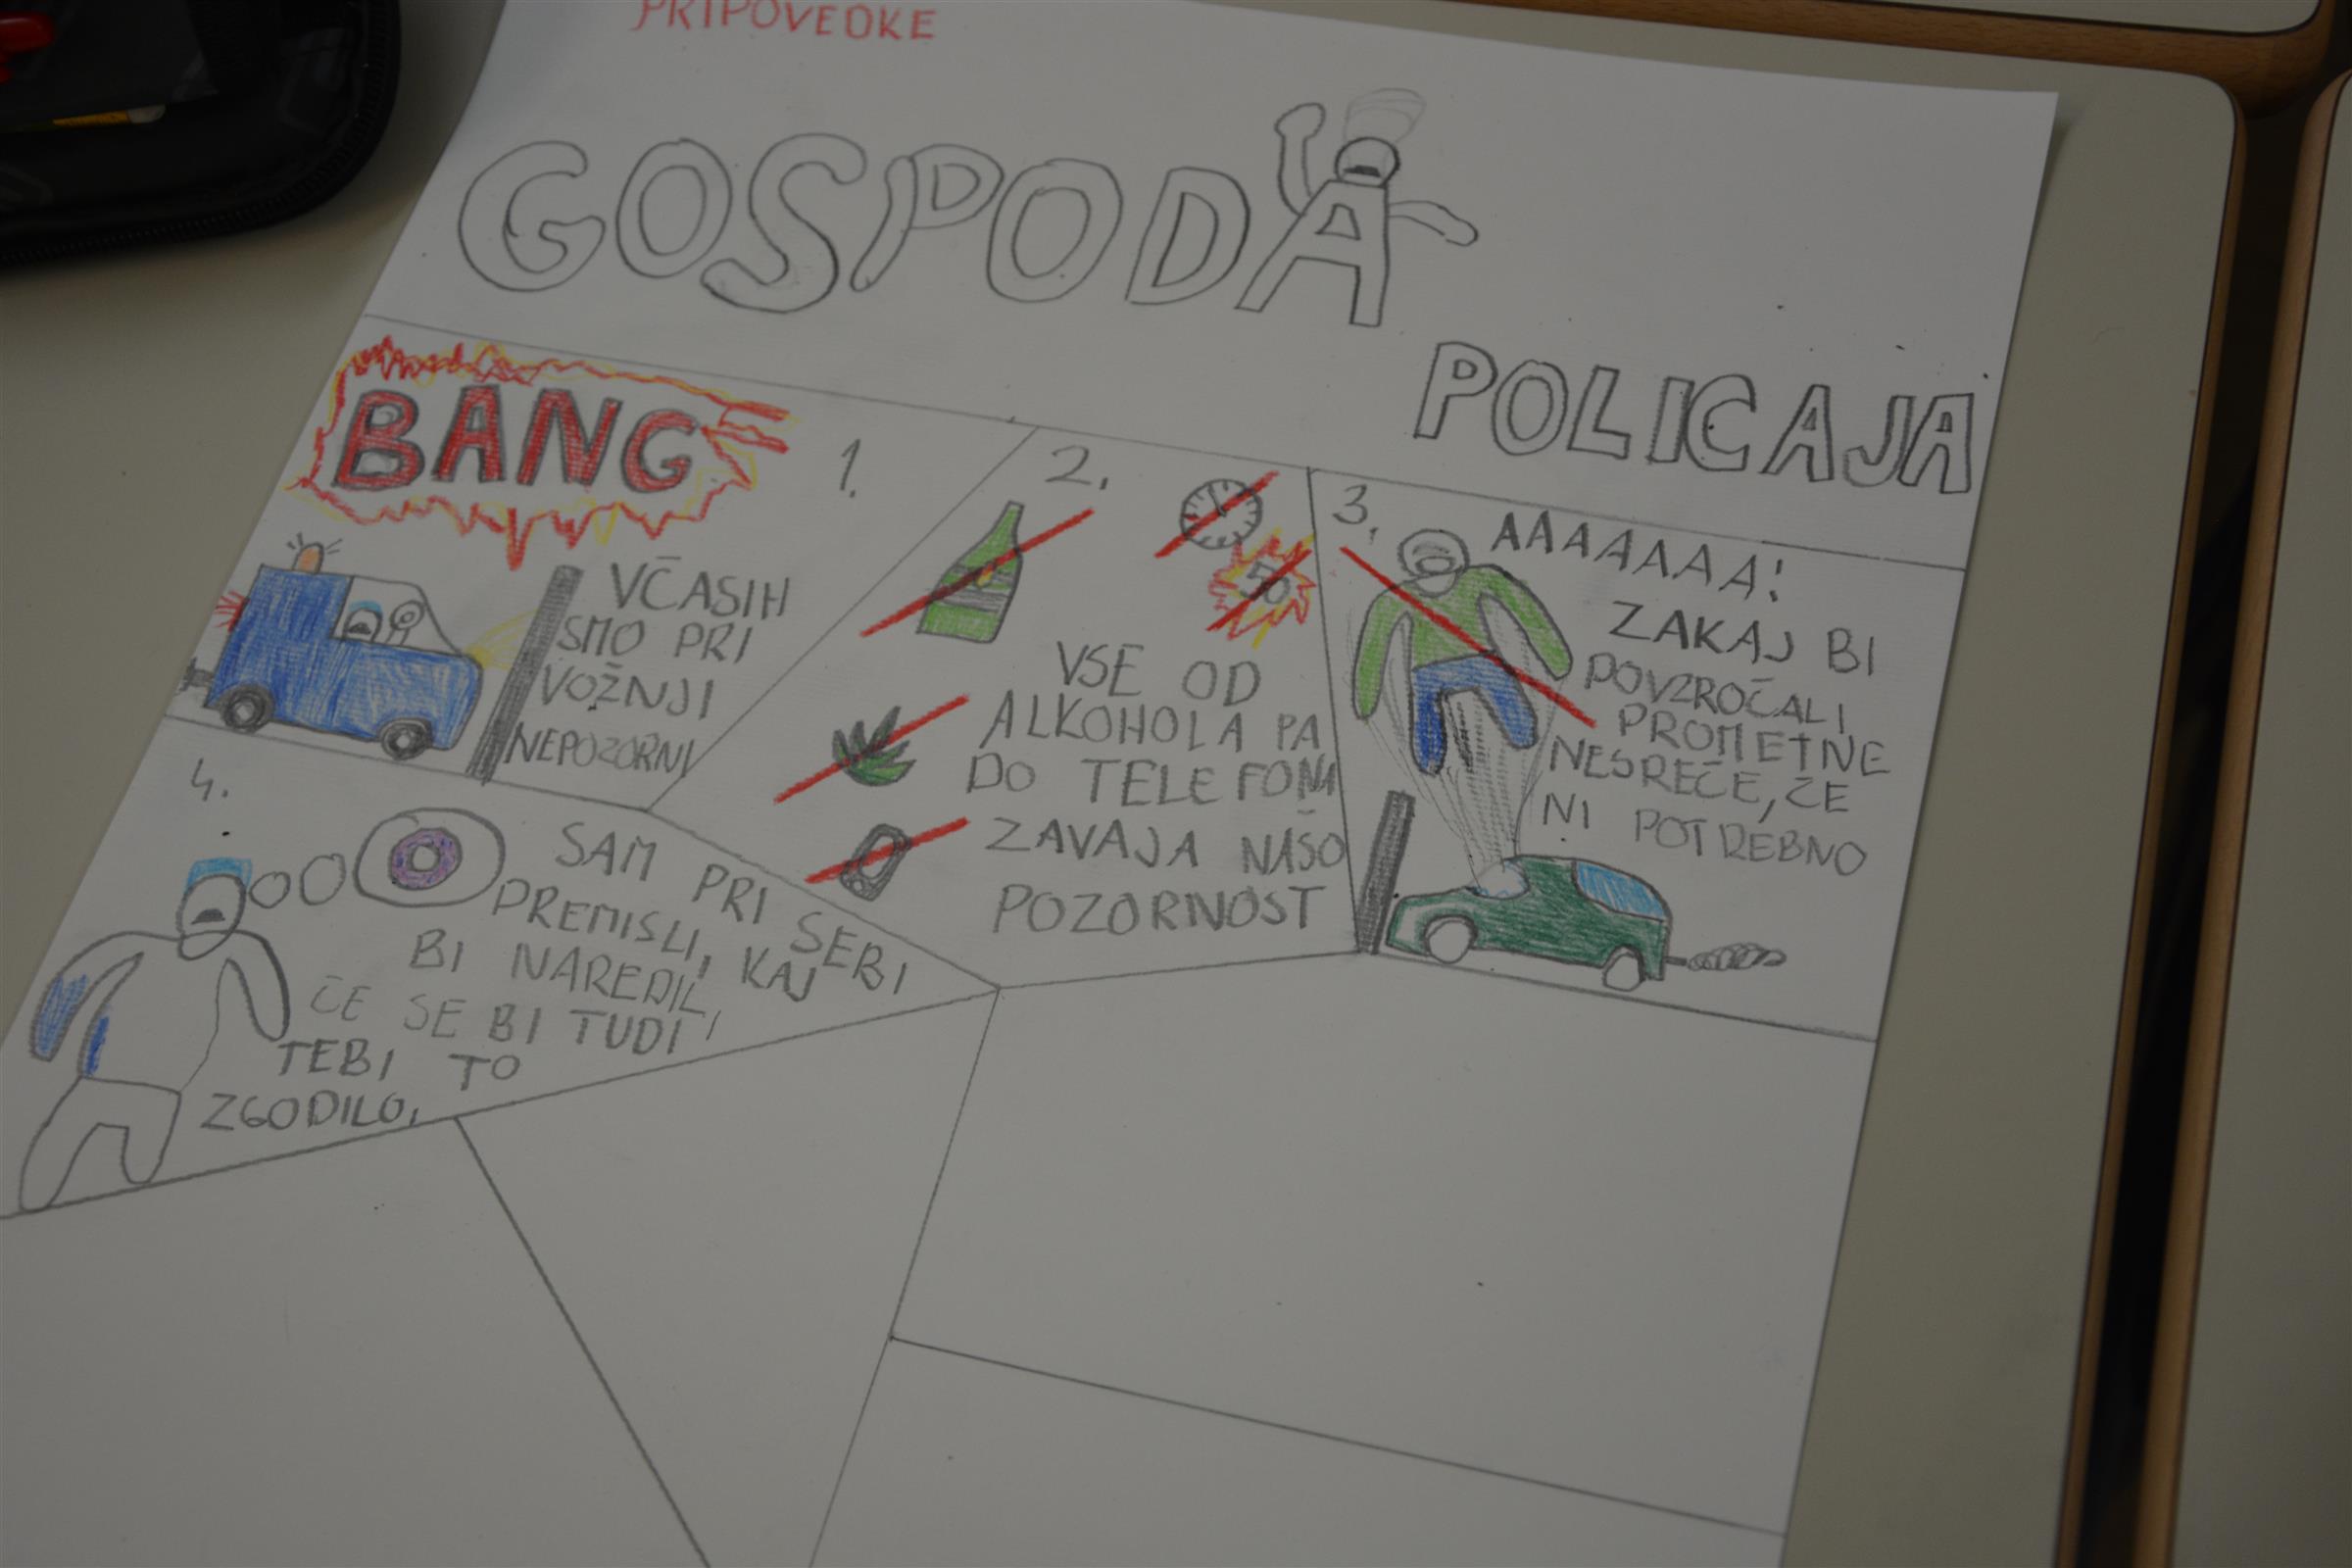 PRIPOVEDKE
GOSPODA
POLICAJA
BANG
1.
VČASIH
SMO PRI
VOŽNJI
NEPOZORNI
2.
50
VSE OD
ALKOHOLA PA
DO TELEFONA
ZAVAJA NAŠO
POZORNOST
3.
AAAAAAA!
ZAKAJ BI
POVZROČALI
PROMETNE
NESREČE, ČE
NI POTREBNO
4.
SAM PRI SEBI
PREMISLI, KAJ
BI NAREDIL,
ČE SE BI TUDI
TEBI TO
ZGODILO.